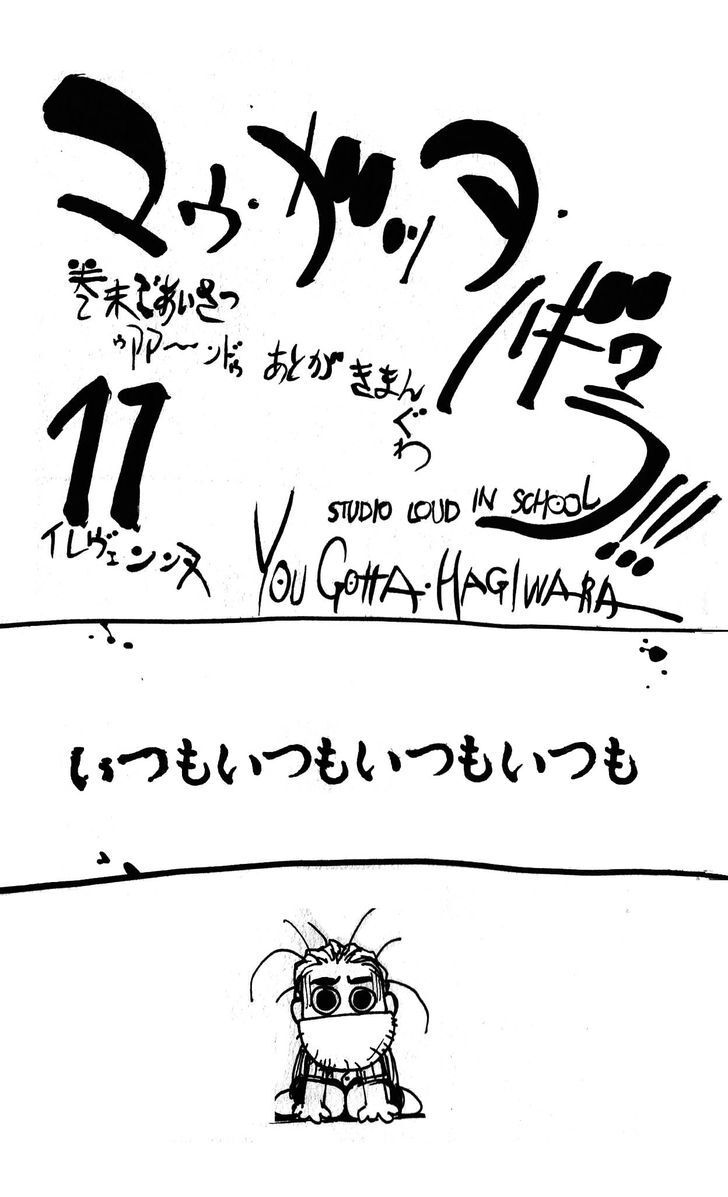 巻末であいさつ
ゥアア〜ンドゥ あとがきまんぐわ
11
イレヴェンンヌ
STUDIO LOUD IN SCHOOL
YOU GOTTA・HAGIWARA
いつもいつもいつもいつも